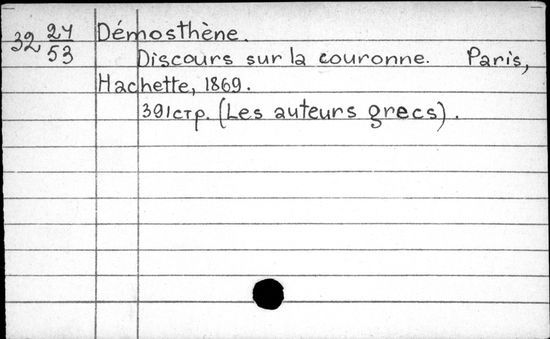 32 27/53 Démosthène.
Discours sur la couronne. Paris,
Hachette, 1869.
391стр. (Les auteurs grecs).